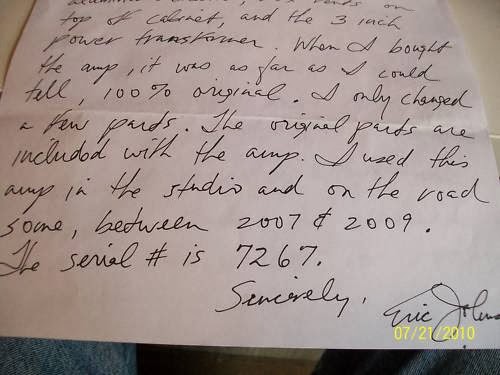 top of cabinet, and the 3 inch
power transformer. When I bought
the amp, it was as far as I could
tell, 100% original. I only changed
a few parts. The original parts are
included with the amp. I used this
amp in the studio and on the road
some, between 2007 & 2009.
The serial # is 7267.
Sincerely,
Eric
07/21/2010